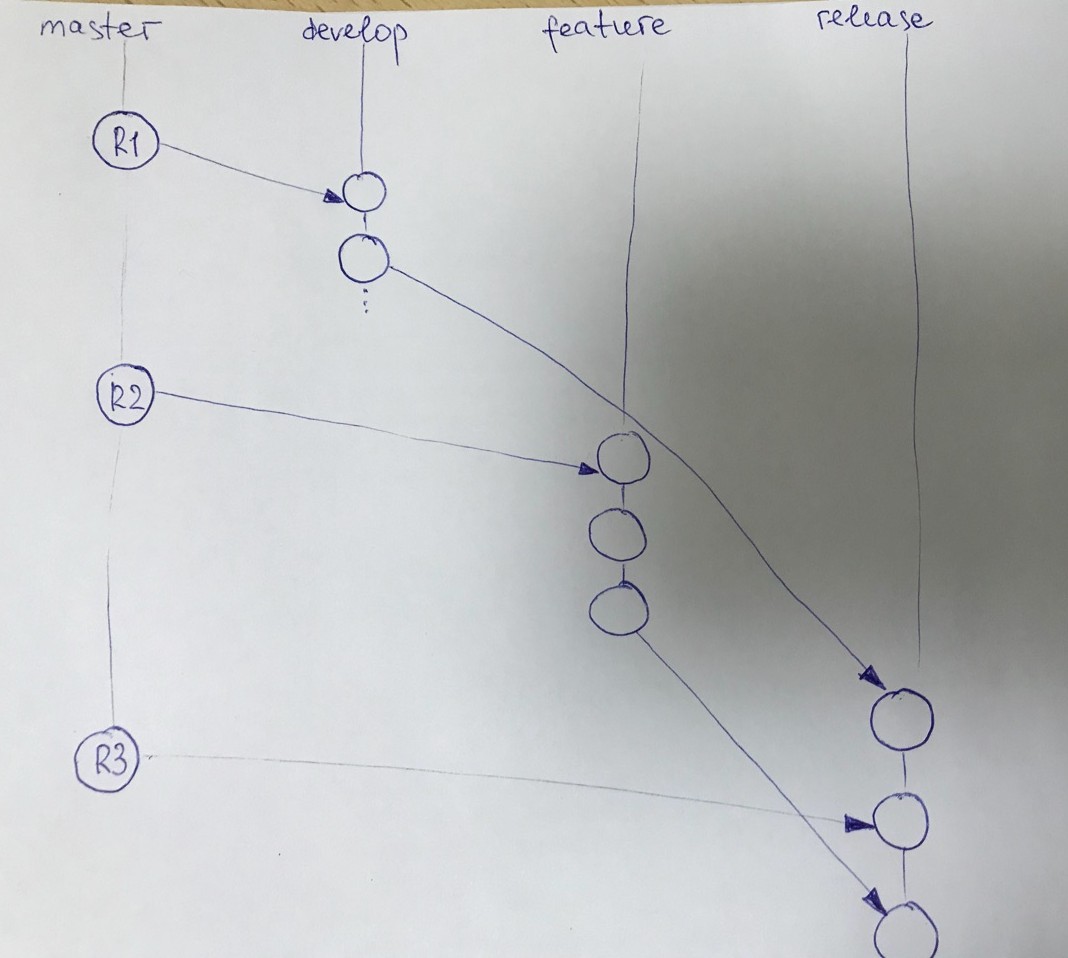 master develop feature release
R1
R2
R3